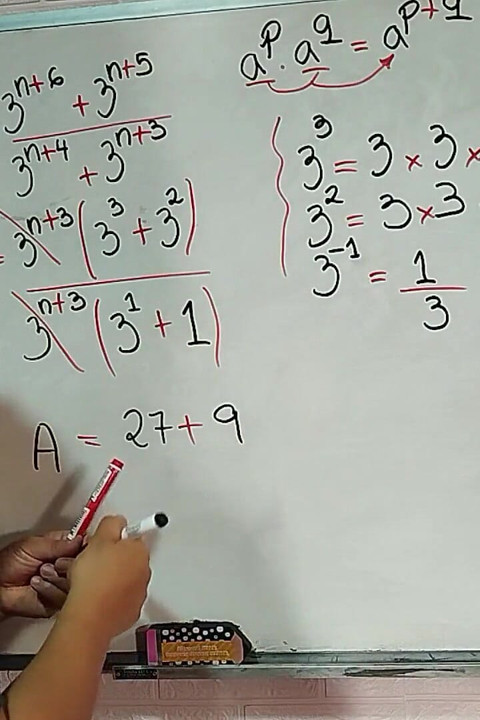 3^{n+6} + 3^{n+5}
3^{n+4} + 3^{n+3}
= 3^{n+3} (3^3 + 3^2)
3^{n+3} (3^1 + 1)
A = 27 + 9
a^p . a^q = a^{p+q}
3^3 = 3 × 3 ×
3^2 = 3 × 3
3^{-1} = 1/3